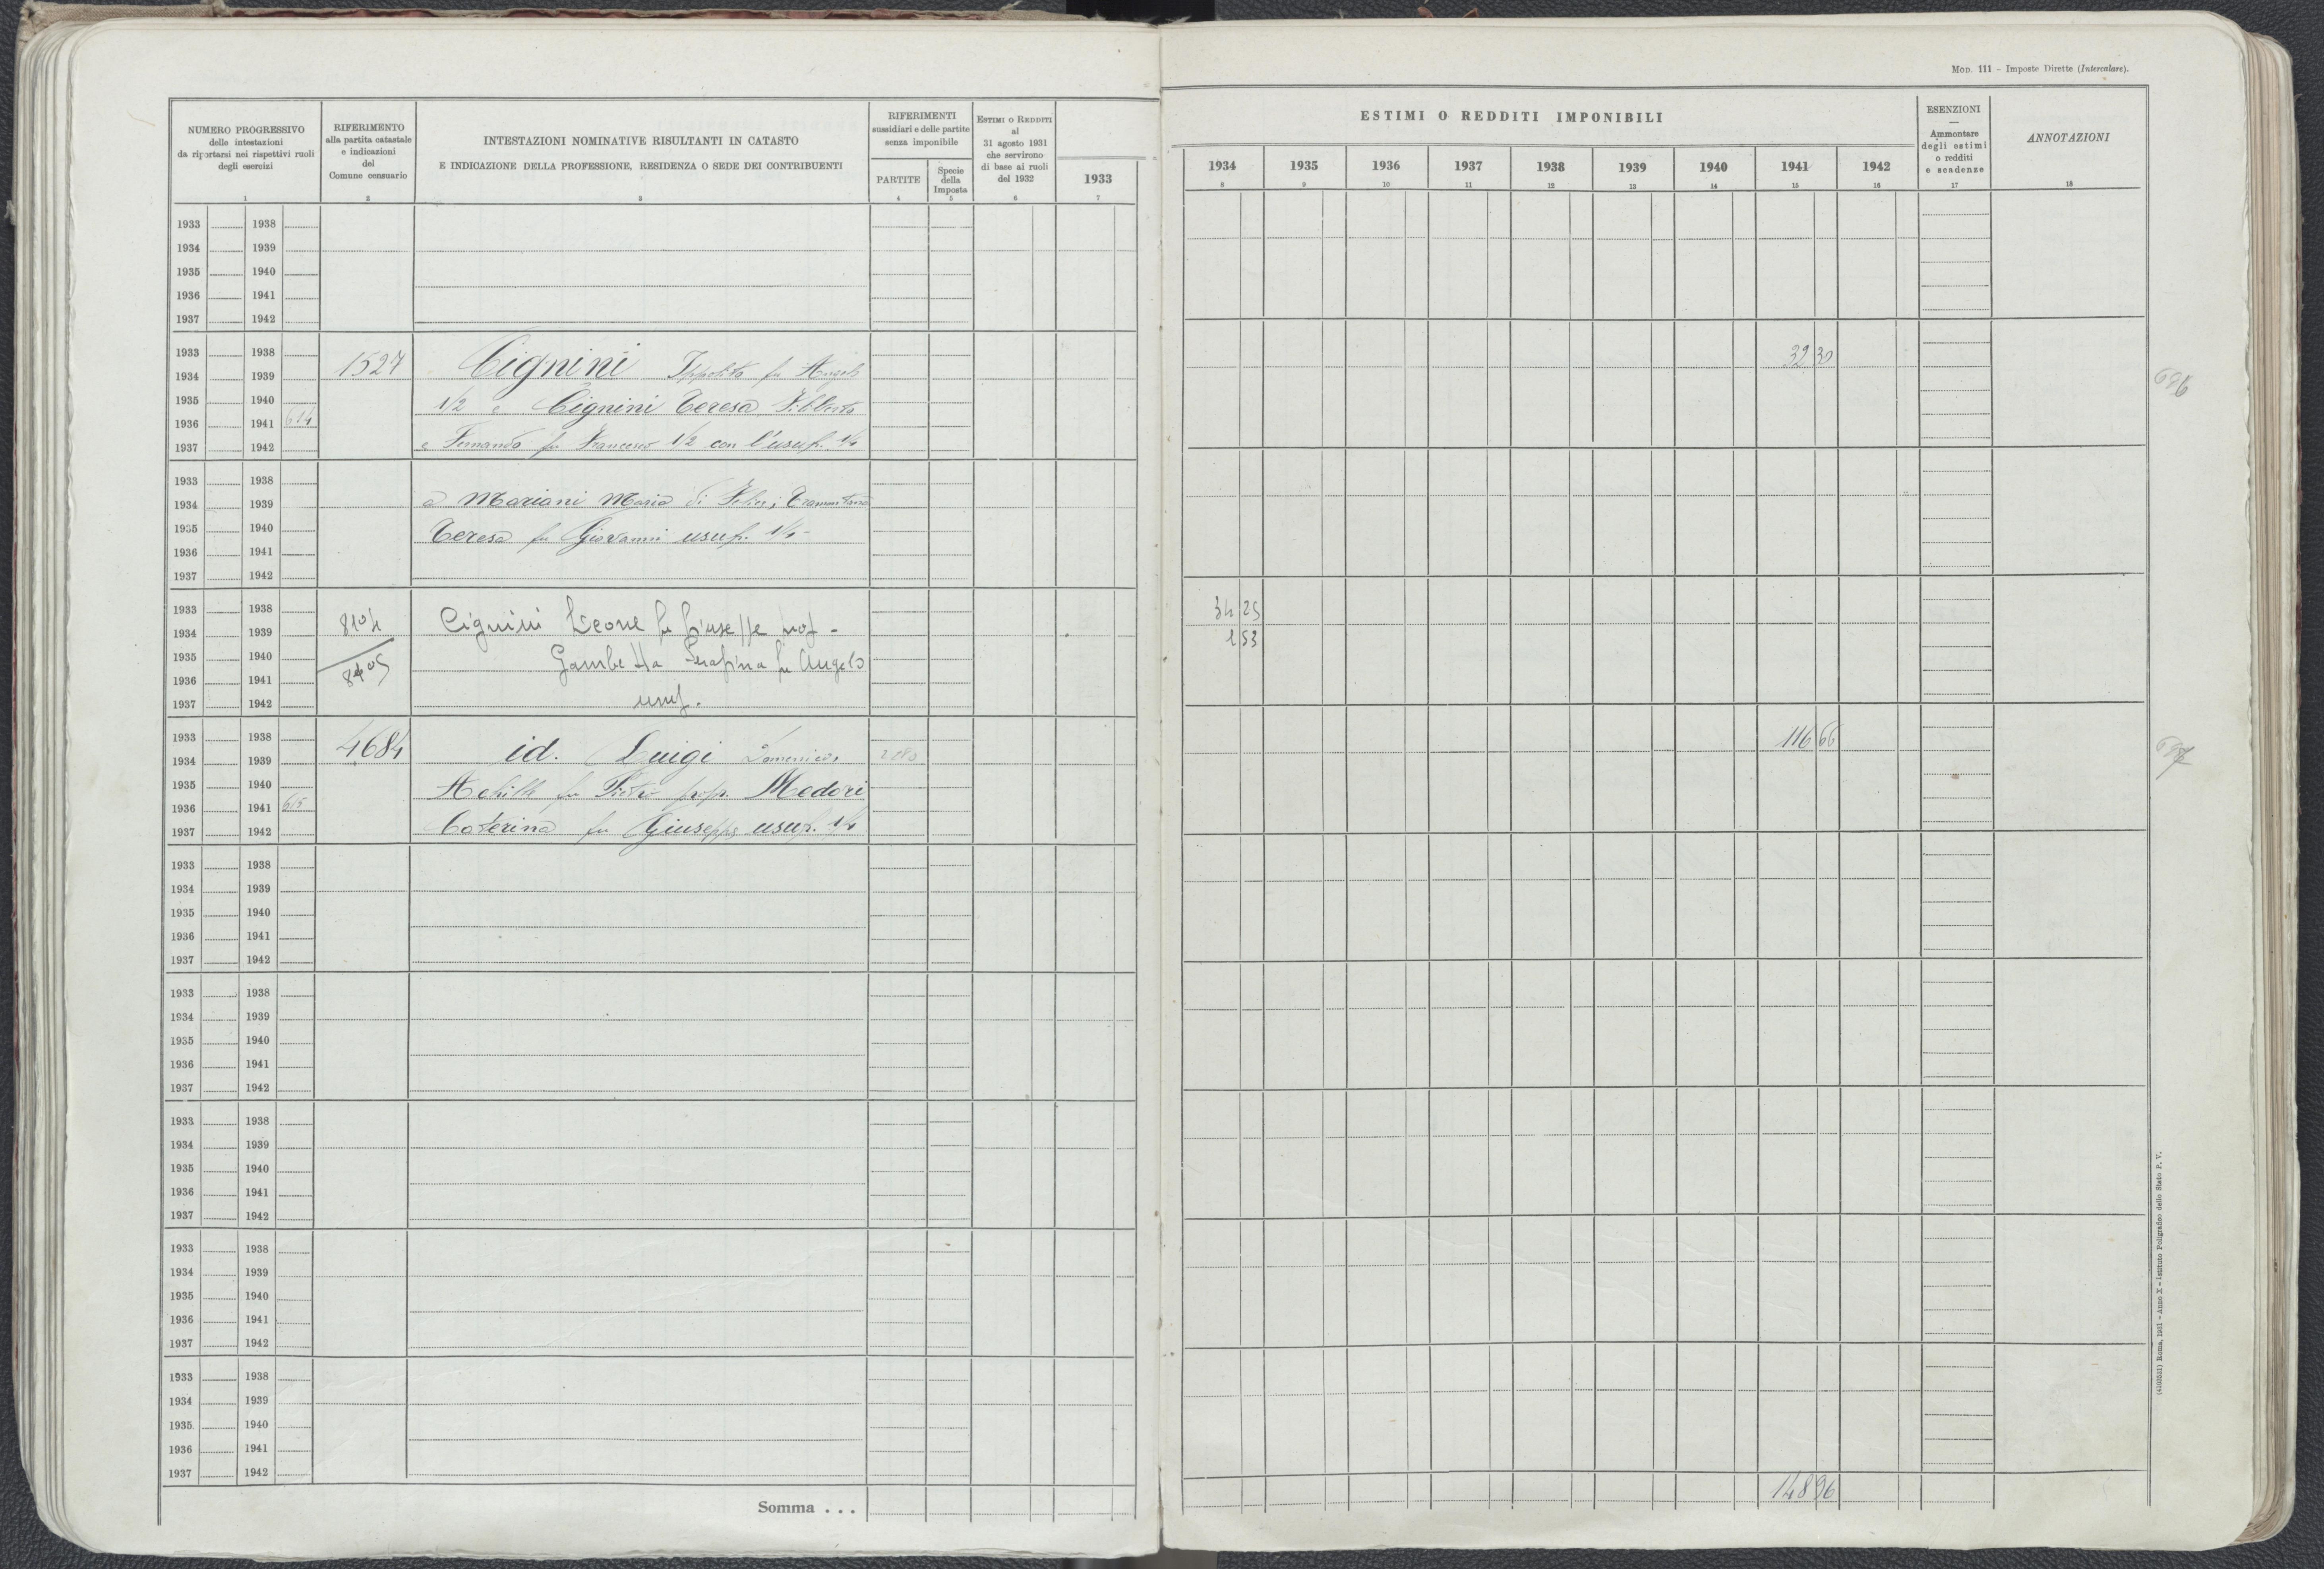 MOD. 111 - Imposte Dirette (Intercalare).
NUMERO PROGRESSIVO
delle intestazioni
da riportarsi nei rispettivi ruoli
degli esercizi
1
RIFERIMENTO
alla partita catastale
e indicazioni
del
Comune censuario
2
INTESTAZIONI NOMINATIVE RISULTANTI IN CATASTO
E INDICAZIONE DELLA PROFESSIONE, RESIDENZA O SEDE DEI CONTRIBUENTI
3
RIFERIMENTI
sussidiari e delle partite
senza imponibile
PARTITE
4
Specie
della
Imposta
5
ESTIMI O REDDITI
al
31 agosto 1931
che servirono
di base ai ruoli
del 1932
6
1933
7
ESTIMI O REDDITI IMPONIBILI
1934 1935 1936 1937 1938 1939 1940 1941 1942
8 9 10 11 12 13 14 15 16
ESENZIONI
—
Ammontare
degli estimi
o redditi
e scadenze
17
ANNOTAZIONI
18
1933 1938
1934 1939
1935 1940
1936 1941
1937 1942
1933 1938
1934 1939 1527 Cignini Ippolito fu Angelo 32 30
1935 1940 1/2 e Cignini Teresa, Filiberto 696
1936 1941 614
1937 1942 e Fernando fu Francesco 1/2 con l'usuf. 1/4
1933 1938
1934 1939 a Mariani Maria di Felice; Tramontana
1935 1940 Teresa fu Giovanni usuf. 1/4 -
1936 1941
1937 1942
1933 1938 34 25
1934 1939 8104 Cignini Leone fu Giuseppe prop - 1 53
1935 1940 Gambetta Serafina fu Angelo
1936 1941 8405
1937 1942 usuf.
1933 1938 116 66
1934 1939 4684 id. Luigi Domenico, 2180 697
1935 1940 Achille fu Pietro prop. Medori
1936 1941 615
1937 1942 Caterina fu Giuseppe usuf. 1/4
1933 1938
1934 1939
1935 1940
1936 1941
1937 1942
1933 1938
1934 1939
1935 1940
1936 1941
1937 1942
1933 1938
1934 1939
1935 1940
1936 1941
1937 1942
1933 1938
1934 1939
1935 1940
1936 1941
1937 1942
1933 1938
1934 1939
1935 1940
1936 1941
1937 1942
Somma . . . 148 96
(4103531) Roma, 1931 - Anno X - Istituto Poligrafico dello Stato P. V.